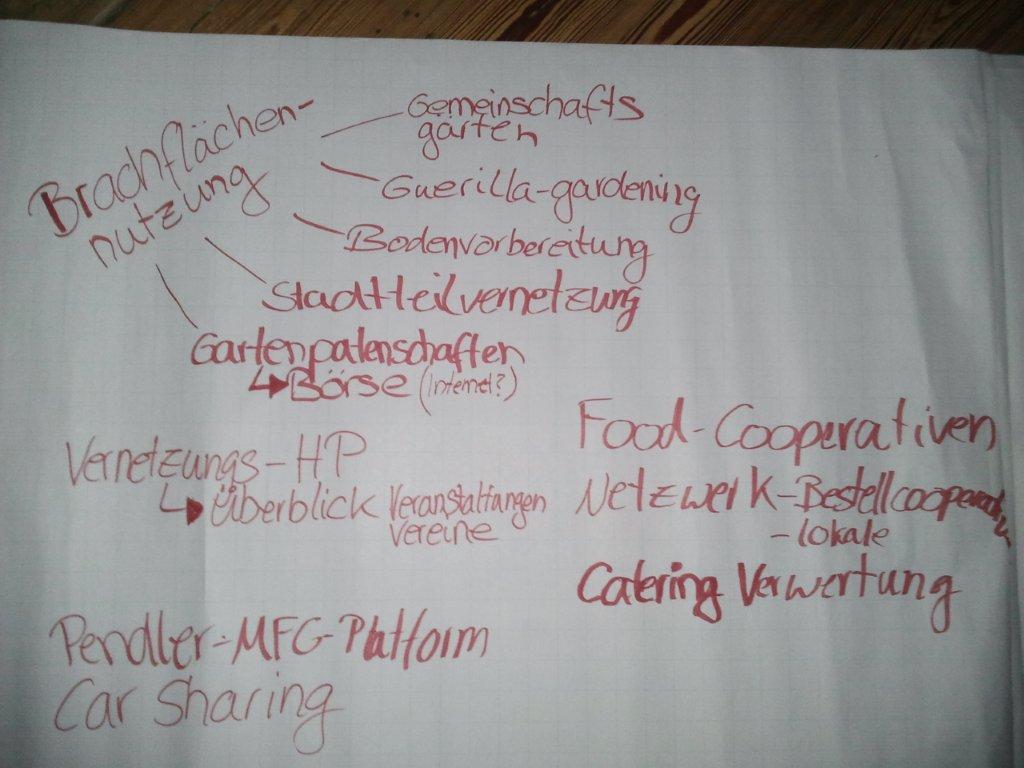 Brachflächen-
nutzung
Gemeinschafts
gärten
Guerilla-gardening
Bodenvorbereitung
Stadtteilvernetzung
Gartenpatenschaften
↳ Börse (Internet?)
Vernetzungs-HP
↳ Überblick Veranstaltungen
Vereine
Pendler-MFG-Platform
Car Sharing
Food-Cooperativen
Netzwerk-Bestellcooperativen
- lokale
Catering Verwertung